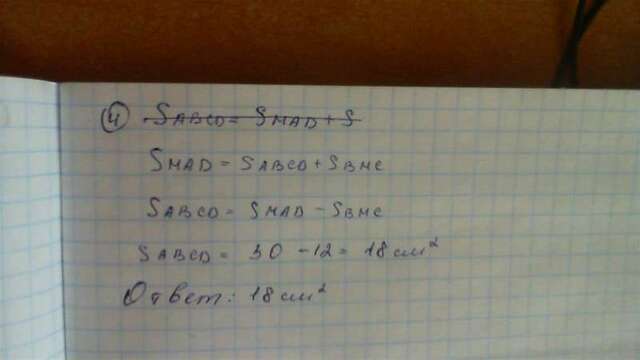 ④ SABCD = SMAD + S
SMAD = SABCD + SBMC
SABCD = SMAD - SBMC
SABCD = 30 - 12 = 18 см²
Ответ: 18 см²